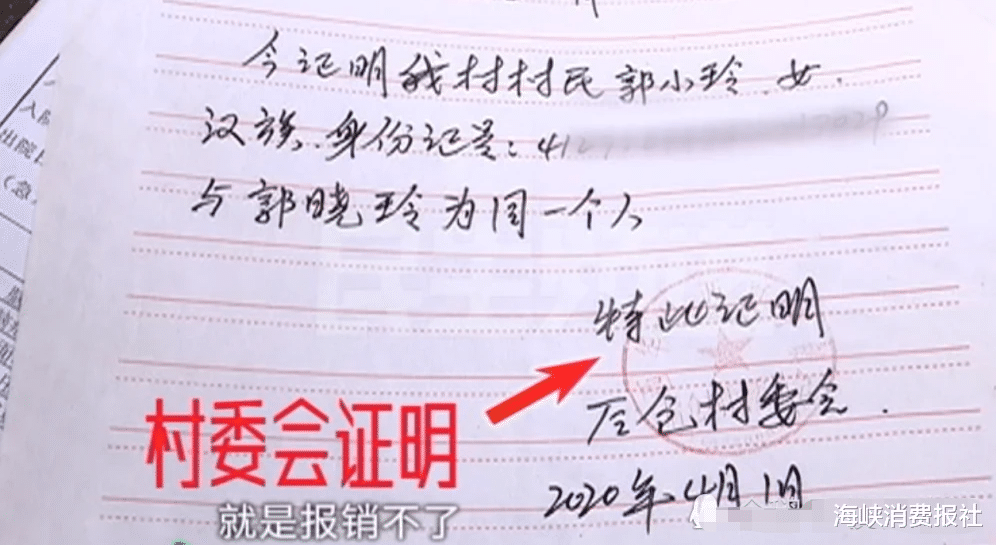 今证明我村村民郭小玲.女.
汉族.身份证是:412
与郭晓玲为同一个人
特此证明
后仓村委会.
2020年4月1日
村委会证明
就是报销不了
海峡消费报社
入院
出院日
(急